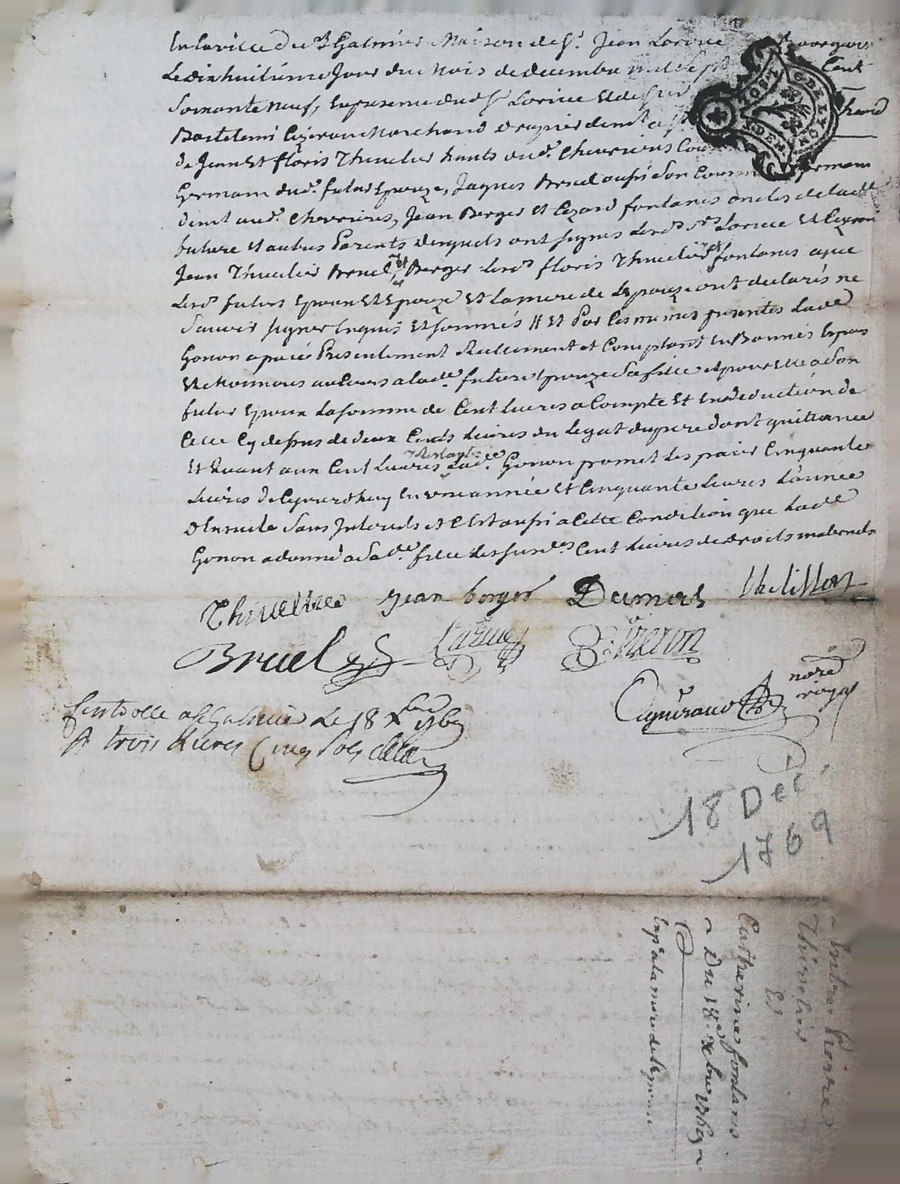 En la ville de St Galmier Maison de Sr. Jean Lorice Bourgeois
Le dixhuitième Jour du Mois de decembre mil sept Cent
Soixante Neuf, En presence dud. Sr Lorice Et de Sieur
Bartelemi marchand drapier demt
de Jean Et floris Thivelier hants aud. Chevrieres
Germain dud. futur Epoux, Jaques Bruel aussi Son Cousin germain
demt aud. Chevrieres, Jean Berger Et Cezard fontanes oncles de lade
future Et autres Parents desquels ont signés Lesds. Srs Lorice Et
Jean Thivelier Bruel, Et Berger Lesds. floris Thivelier Et fontanes
Lesds. futurs Epoux Et Epouze Et la mere de L'epouze ont declarés ne
Sauoir signer Enquis Et Sommés Et Par Ces mêmes presentes Lade
Gonon a paié Presentement Reellement et Comptant En Bonnes Especes
Et Monnoies au Cours a lade. future Epouze Sa fille et a Son
futur Epoux La somme de Cent Livres a Compte Et En deduction de
Celle Cy dessus de deux Cents Livres du Legat du pere dont quittance
Et Quant aux Cent Livres lade. Gonon promet Les paier Cinquante
Livres de Cejourdhuy En une année Et Cinquante Livres L'année
d'Ensuite Sans Interets Et C'est aussi a Cette Condition que Lade
Gonon a donné a Sade. fille Les susds. Cent Livres de droits maternels
Thivellier Jean berger Dumas
Bruel
nore
royal
Controllé a St Galmier Le 18 Xbre 1769
R trois Livres Cinq Sols
18 Déc.
1769
Entre Pierre
Thivelier
Et
Catherine fontanes
Du 18e Xbre 1769
Expe a la mere de l'Epouse